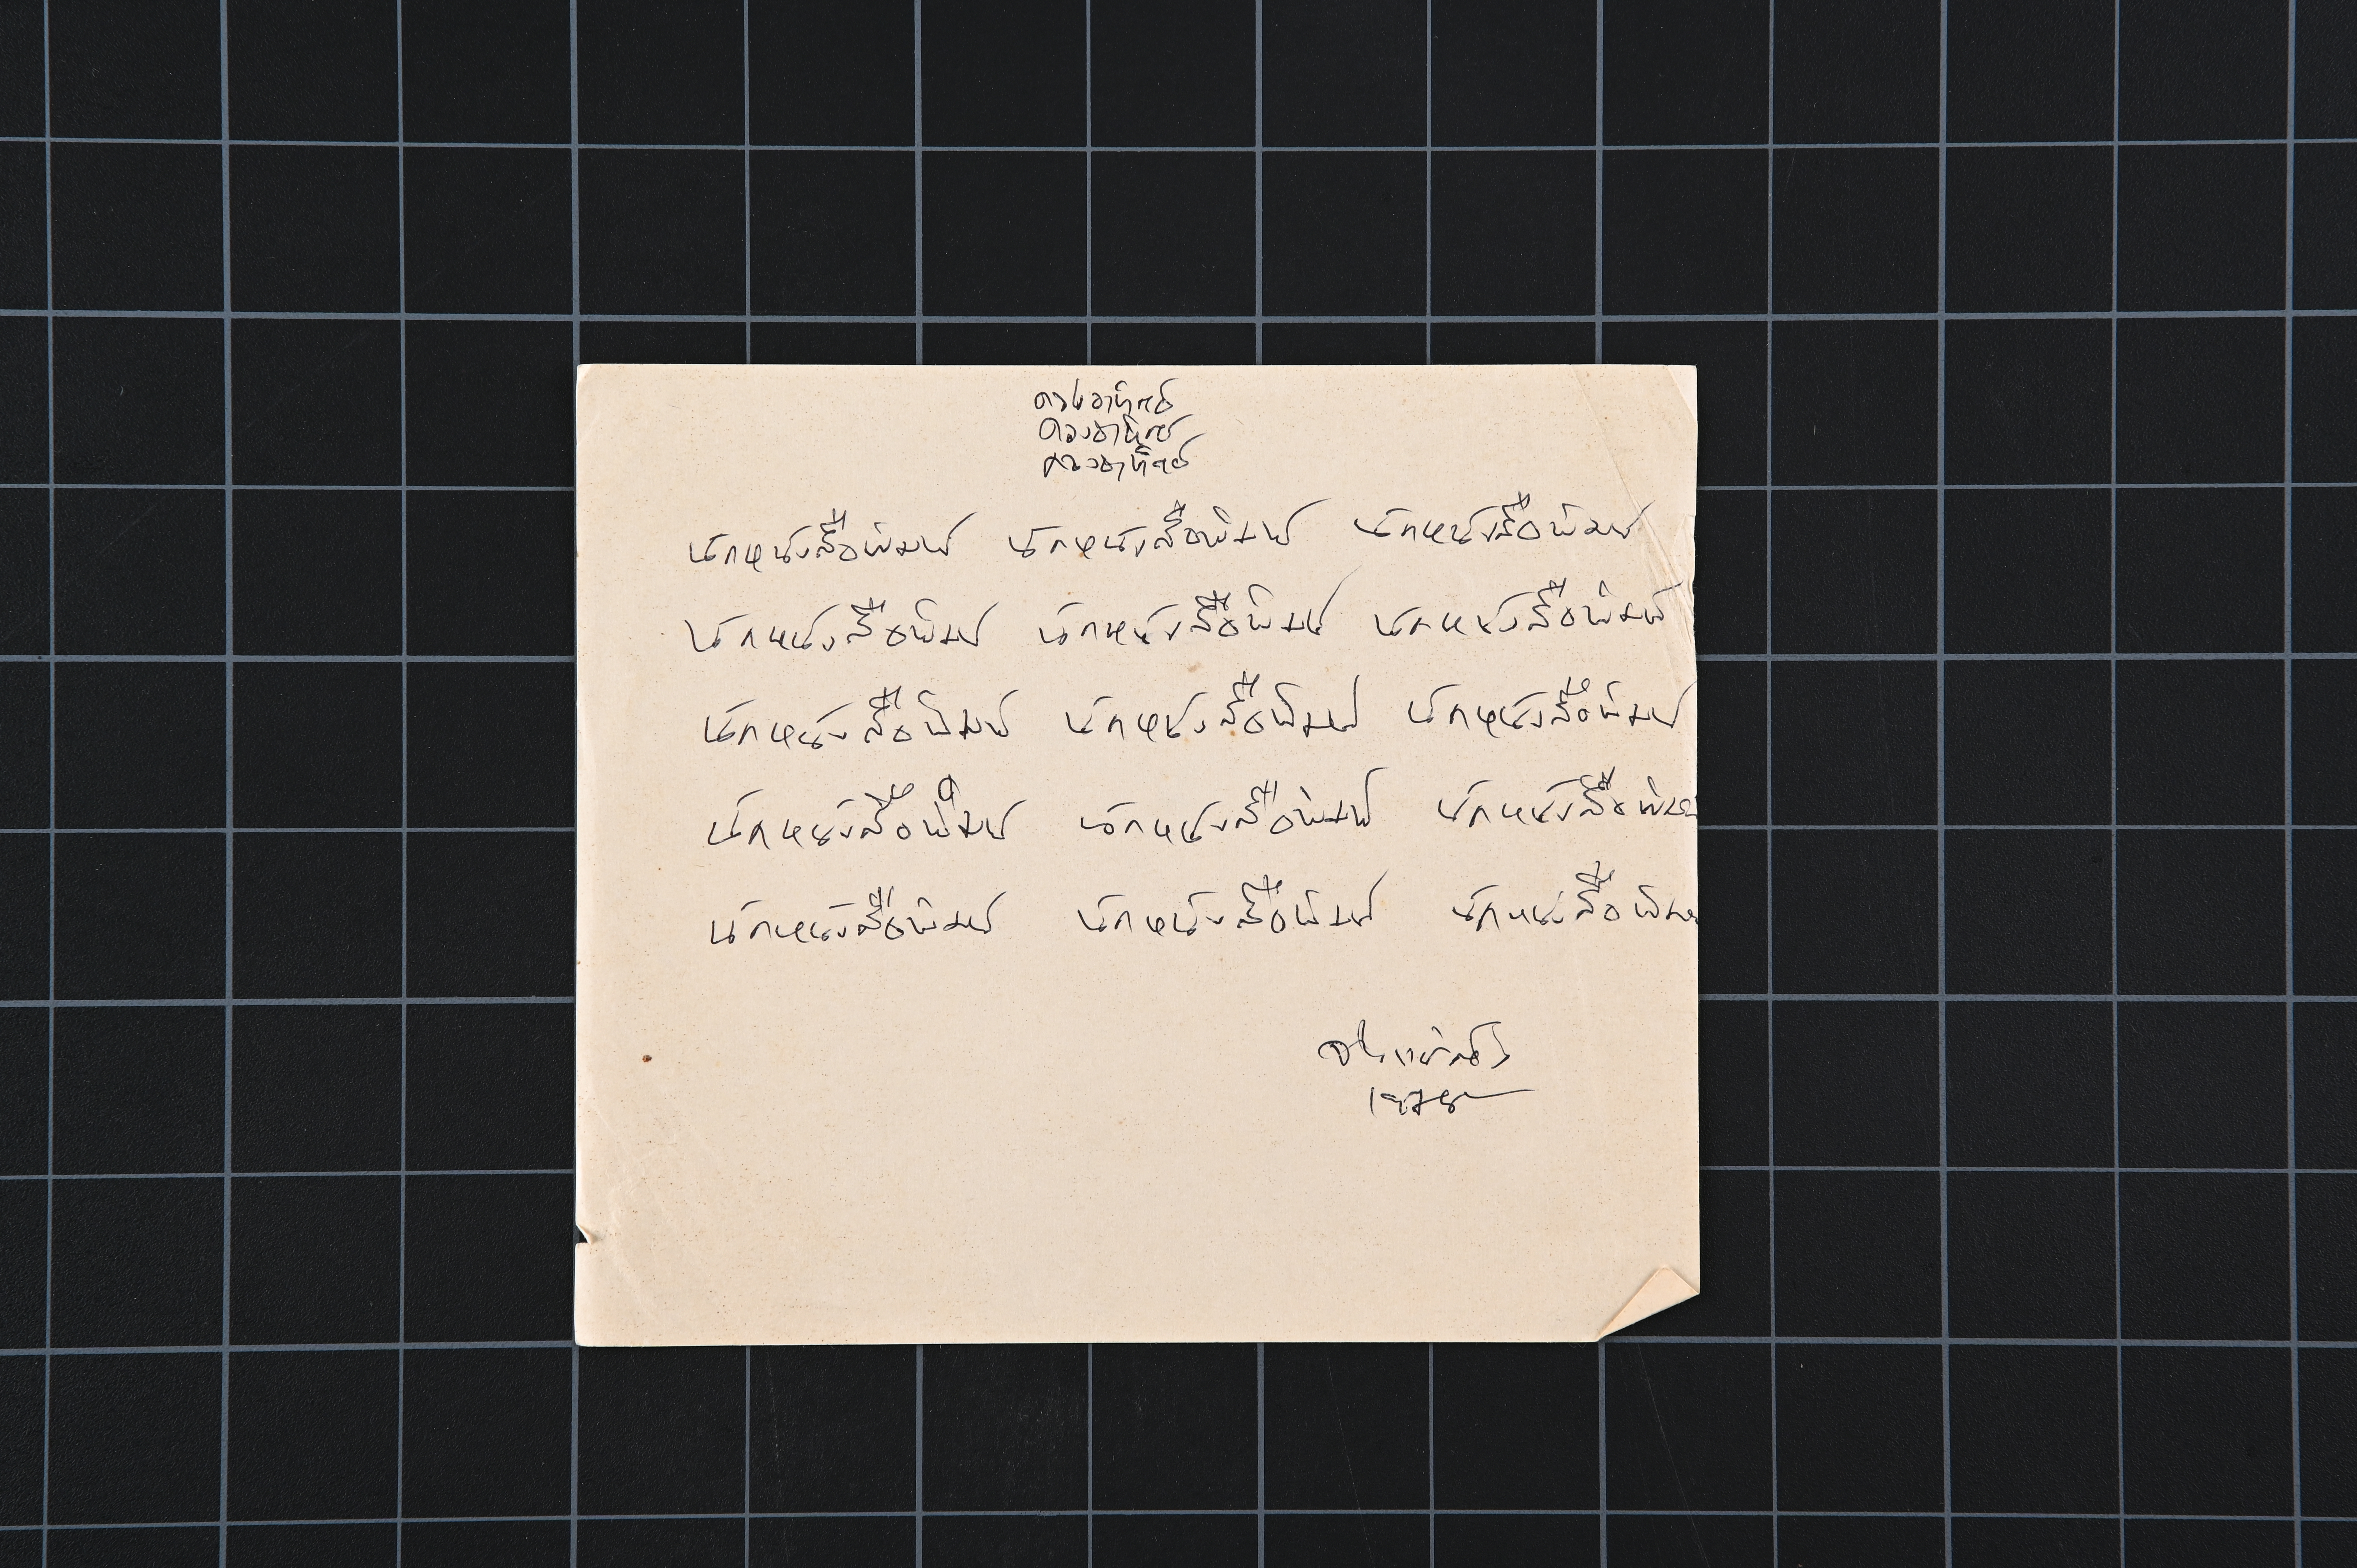 ดวงอาทิตย์
ดวงอาทิตย์
ดวงอาทิตย์
นักหนังสือพิมพ์ นักหนังสือพิมพ์ นักหนังสือพิมพ์
นักหนังสือพิมพ์ นักหนังสือพิมพ์ นักหนังสือพิมพ์
นักหนังสือพิมพ์ นักหนังสือพิมพ์ นักหนังสือพิมพ์
นักหนังสือพิมพ์ นักหนังสือพิมพ์ นักหนังสือพิม
นักหนังสือพิมพ์ นักหนังสือพิมพ์ นักหนังสือพิม
จ่าง แซ่ตั้ง
1978